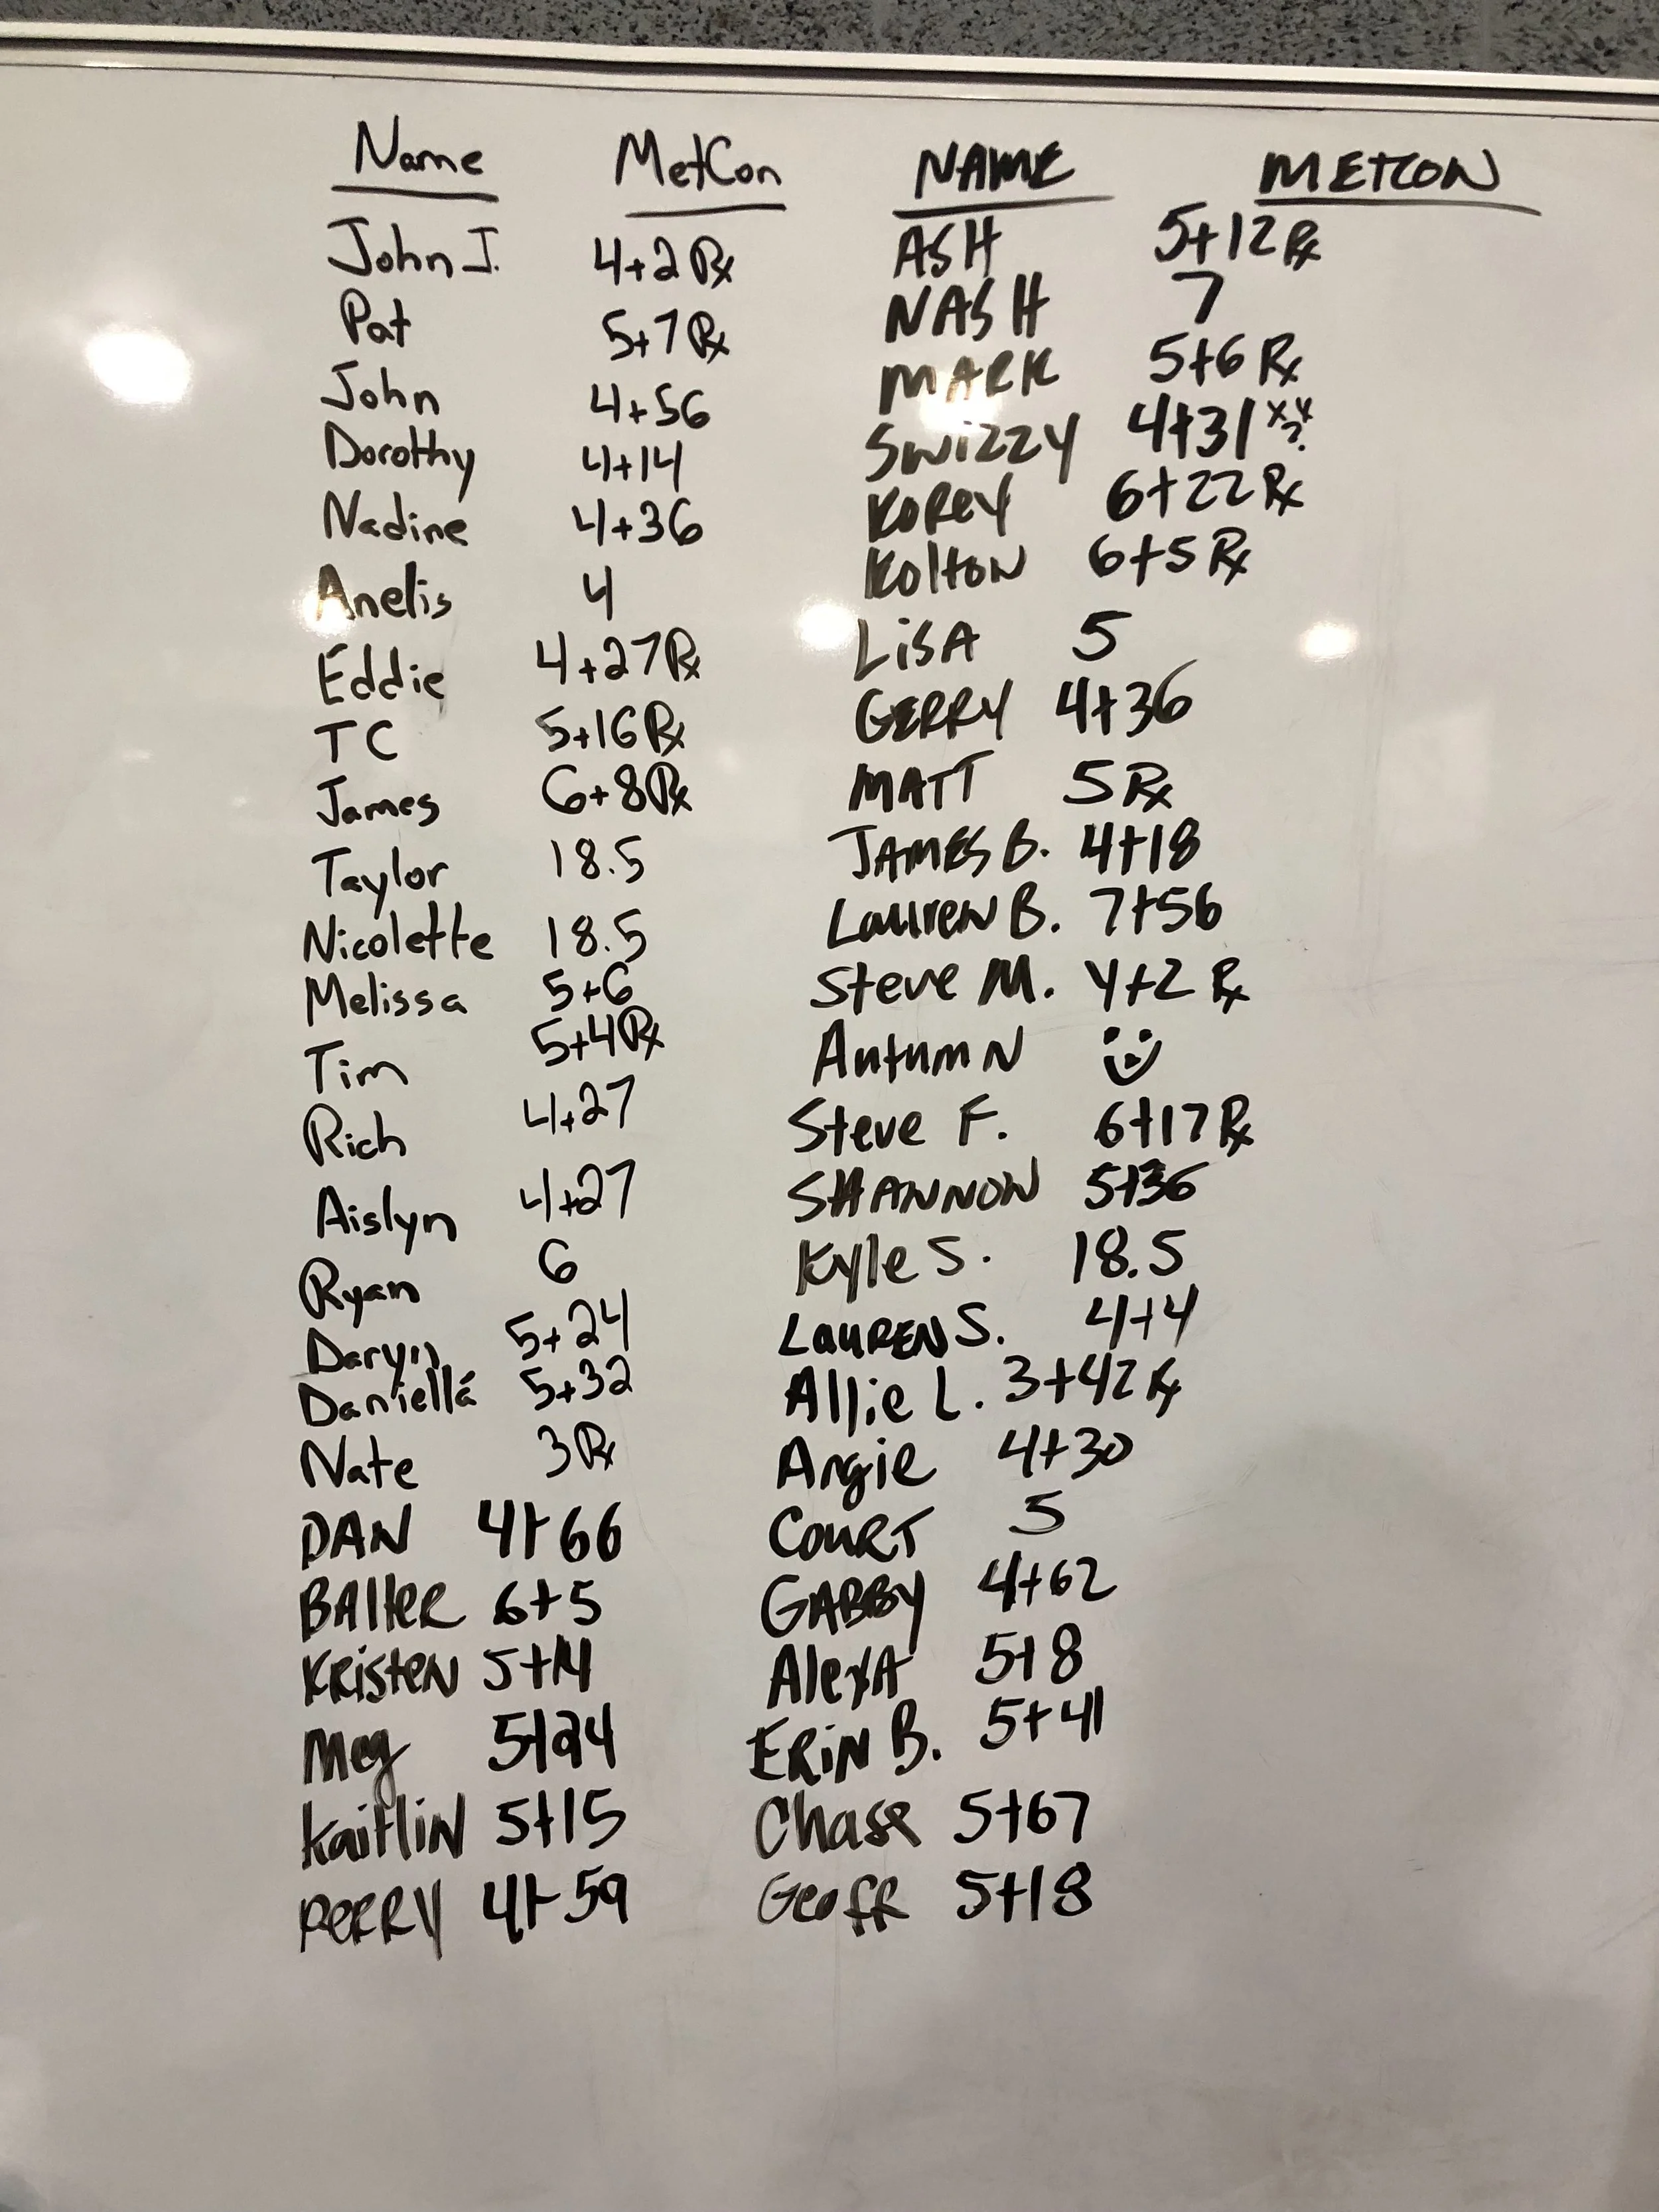 Name MetCon
John J. 4+2 Rx
Pat 5+7 Rx
John 4+56
Dorothy 4+14
Nadine 4+36
Anelis 4
Eddie 4+27 Rx
TC 5+16 Rx
James 6+8 Rx
Taylor 18.5
Nicolette 18.5
Melissa 5+6
Tim 5+4 Rx
Rich 4+27
Aislyn 4+27
Ryan 6
Daryn 5+24
Daniella 5+32
Nate 3 Rx
DAN 4+66
BAlteR 6+5
KRisteN 5+14
Meg 5+24
KaitliN 5+15
PERRY 4+59
NAME METCON
ASH 5+12 Rx
NASH 7
MARK 5+6 Rx
SWiZZY 4+31
KOREY 6+22 Rx
KOltON 6+5 Rx
LiSA 5
GERRY 4+36
MATT 5 Rx
JAMES B. 4+18
LaureN B. 7+56
Steve M. 4+2 Rx
AutumN
Steve F. 6+17 Rx
SHANNON 5+36
Kyle S. 18.5
LauREN S. 4+4
Allie L. 3+42 Rx
Angie 4+30
COuRT 5
GABBY 4+62
AlexA 5+8
ERiN B. 5+41
Chase 5+67
Geoff 5+18